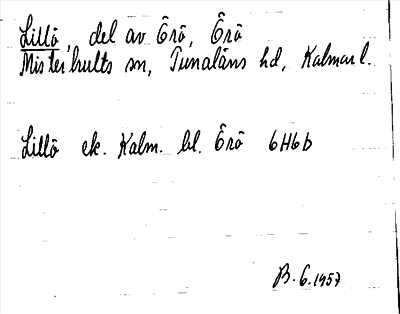 Lillö, del av Örö, Örö
Misterhults sn, Tunaläns hd, Kalmar l.
Lillö ek. Kalm. bl. Örö 6H6b
B. 6. 1957